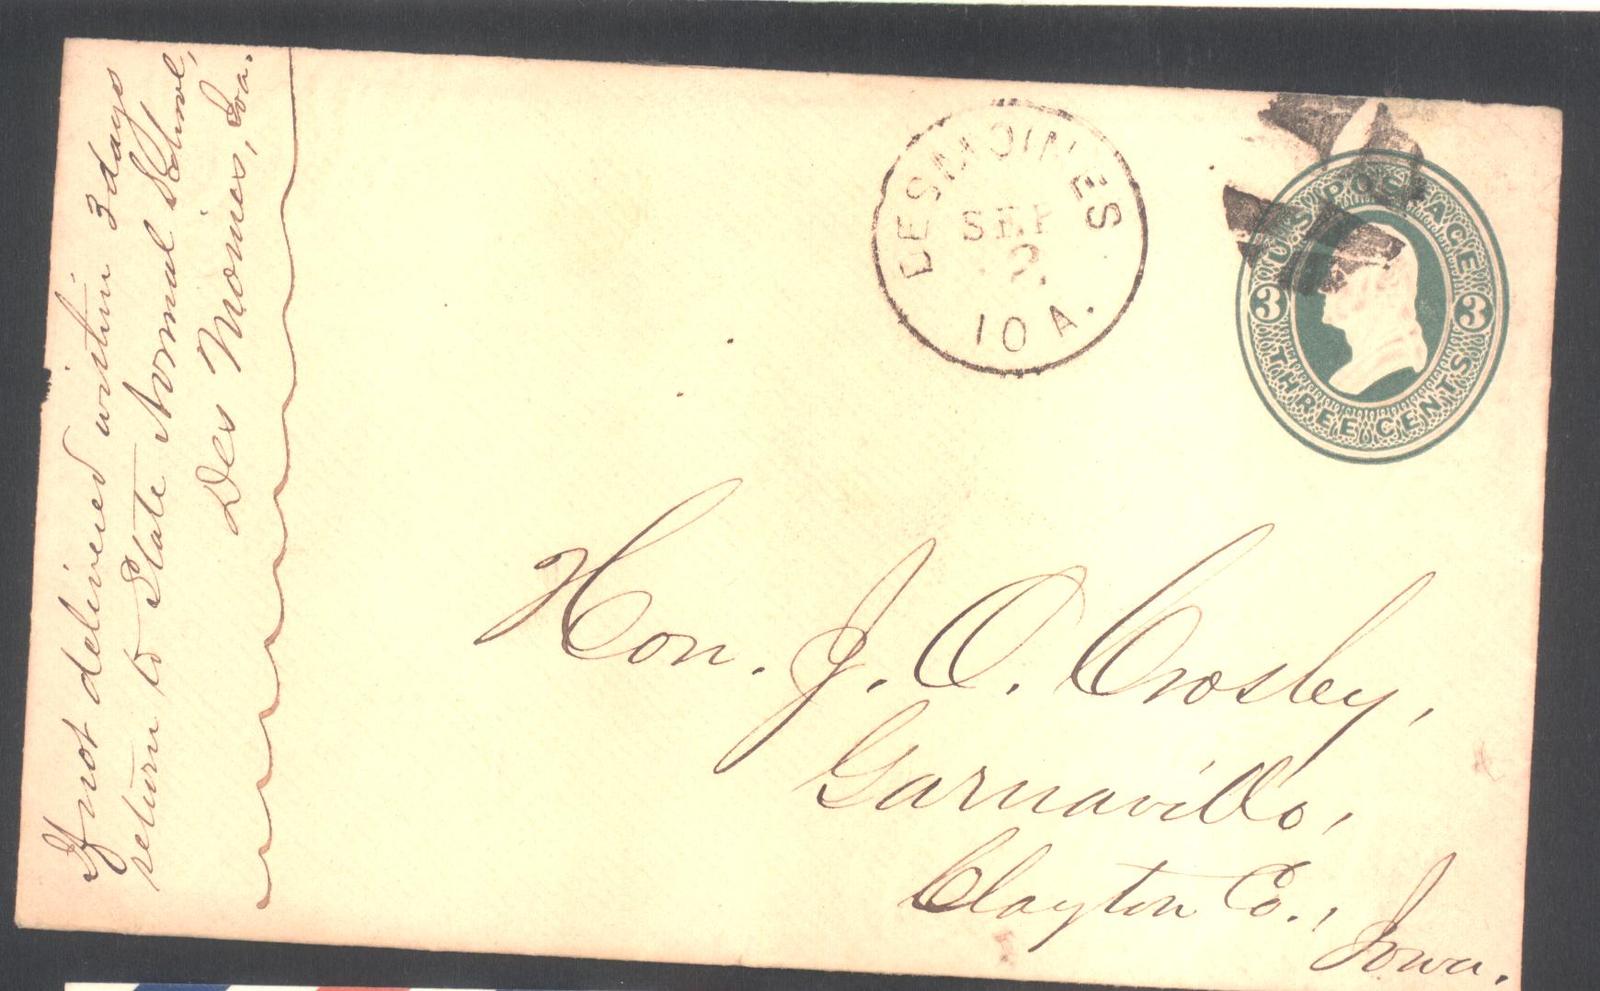 If not delivered within 3 days
return to State Normal School,
Des Moines, Ioa.
DES MOINES
SEP
2
IOA.
U.S. POSTAGE
3 3
THREE CENTS
Hon. J. O. Crosby,
Garnavillo,
Clayton Co., Iowa.